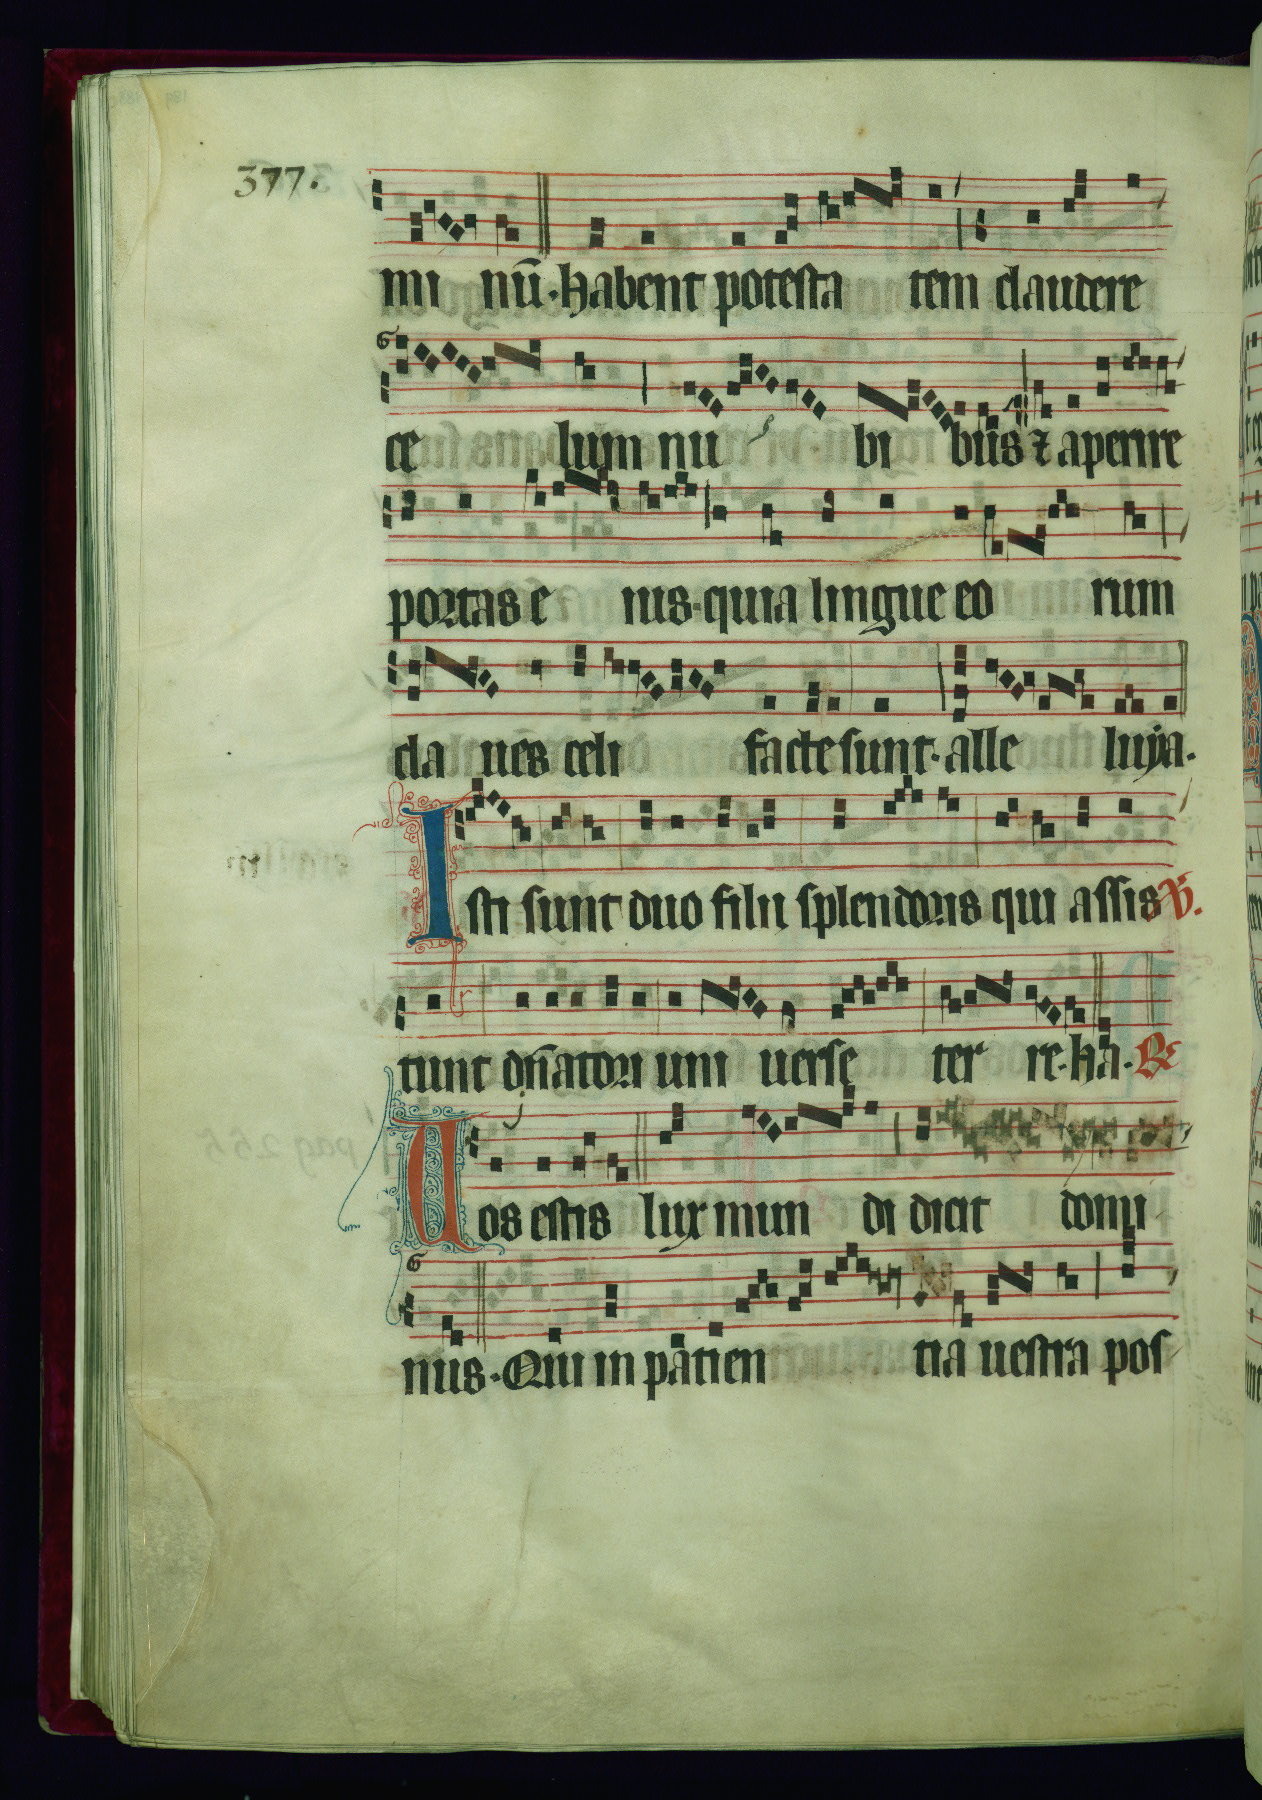 377.
mi nū· habent potesta tem claudere
ce lum nu bi bus ⁊ aperire
portas e ius· quia lingue eo rum
cla ues celi facte sunt· alle luya·
Isti sunt duo filii splendoris qui assis ℣.
tunt dn̄atori uni uerse ter re· ha· ℟
Uos estis lux mun di dicit domi
nus· Qui in patien tia uestra pos